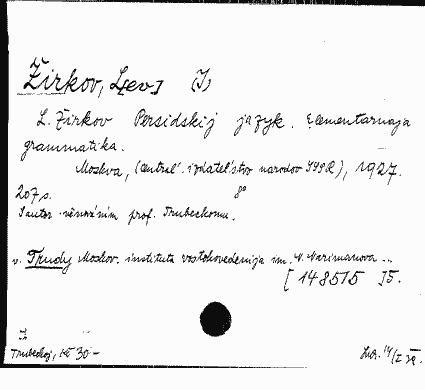 Žirkov, L[ev] (J)
L. Žirkov Persidskij jazyk. Elementarnaja
grammatika.
Moskva, (Central'. izdatel'stvo narodov SSSR), 1927.
207 s. 8°
S autor. věnováním prof. Trubeckomu.
v. Trudy Moskov. instituta vostokovedenija im. N. Narimanova ...
[ 148515 ]5.
Trubeckoj, Kč 30-